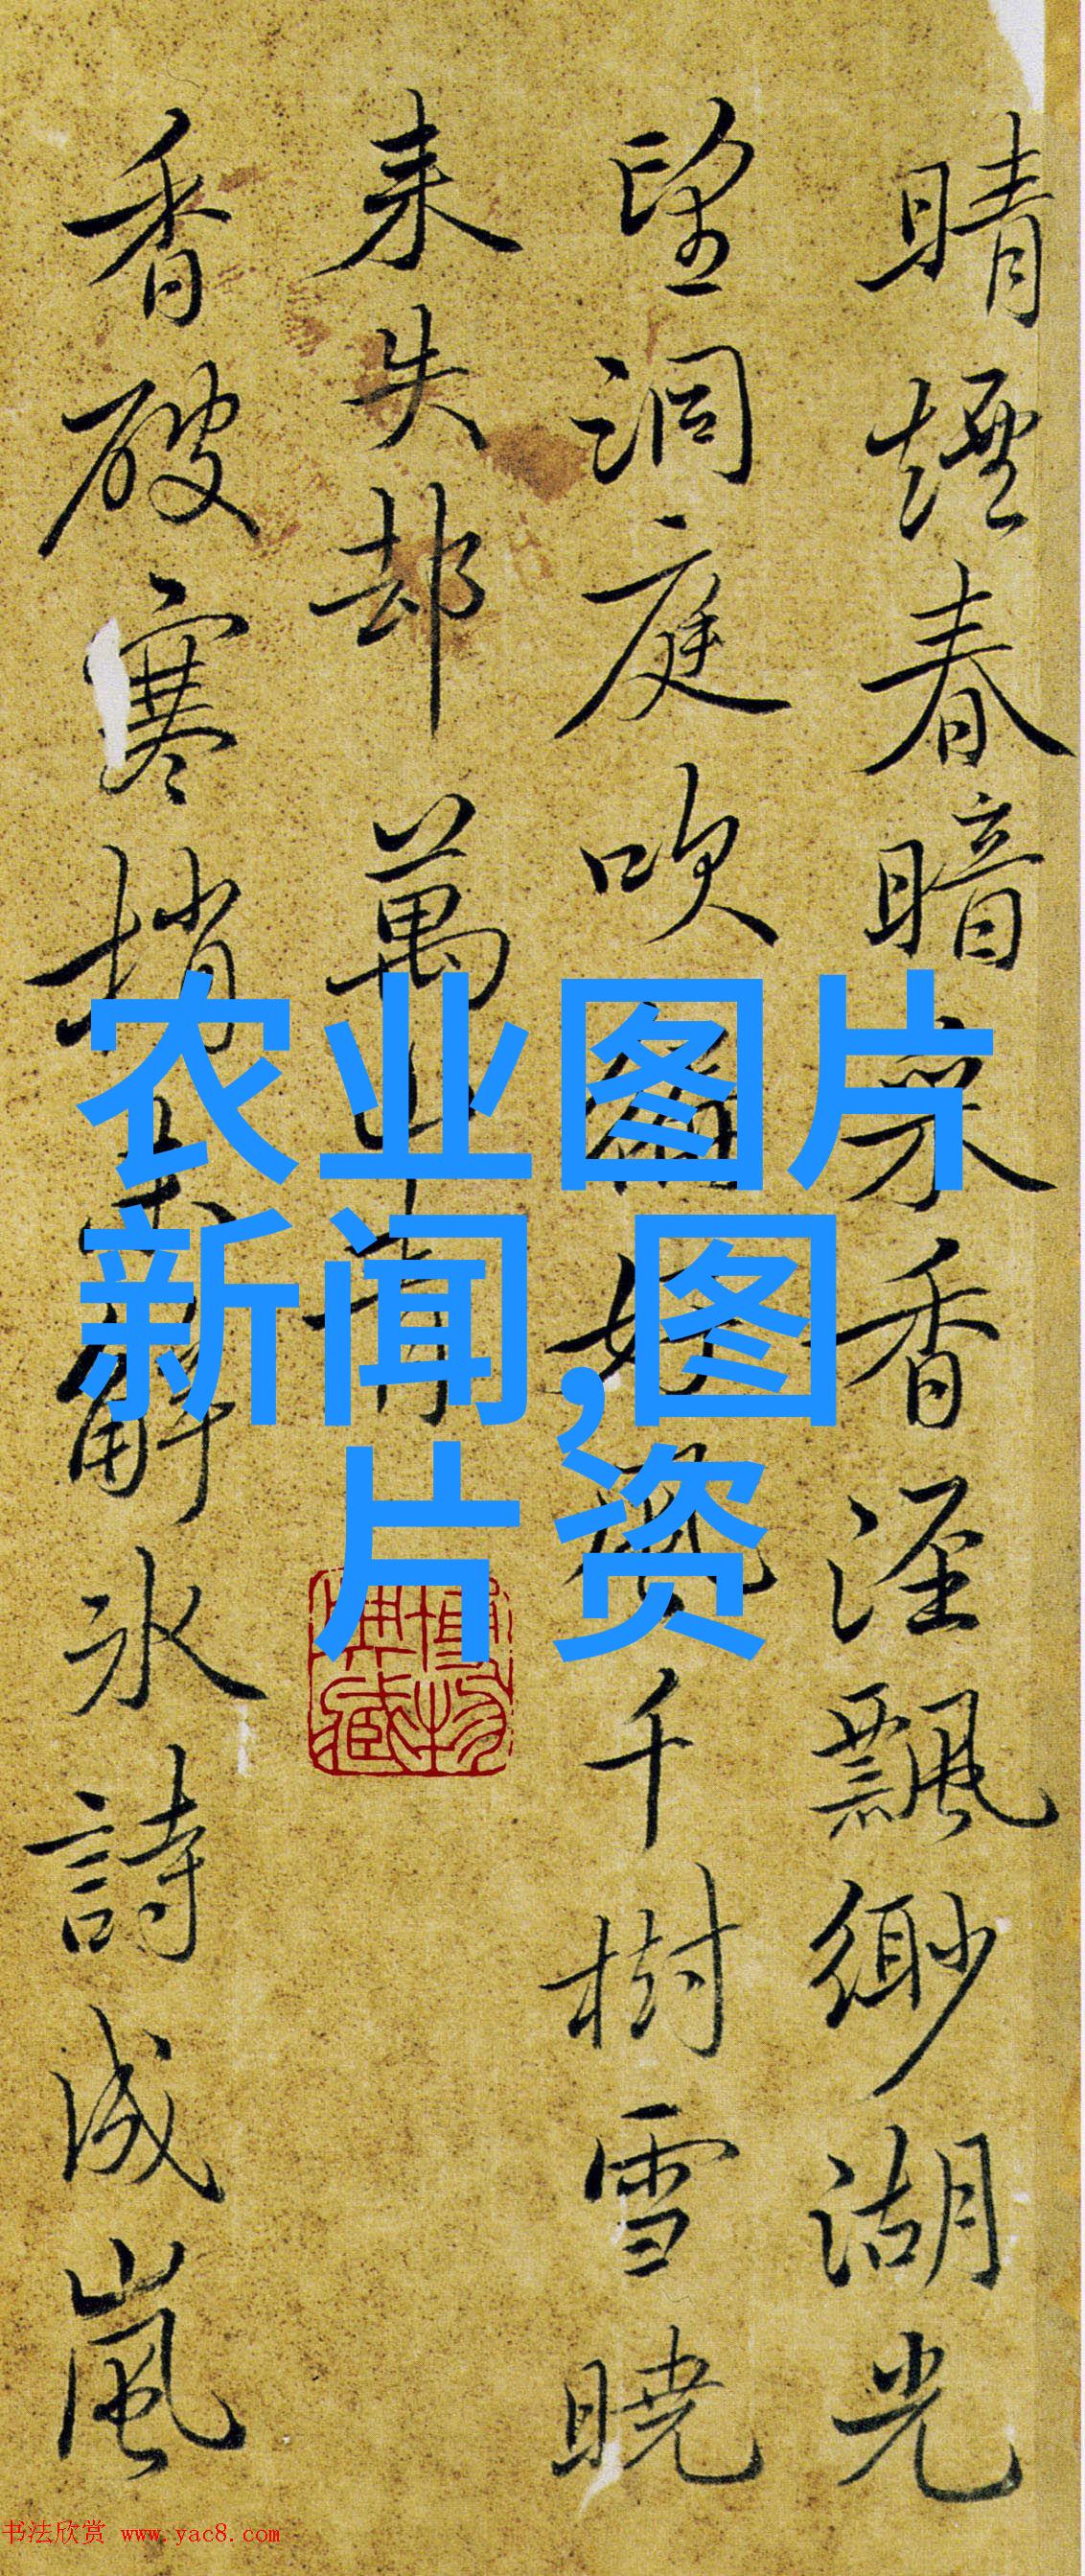 晴煙春暗菜香溼飄緲湖光
望洞庭吹好千樹雪曉
来失却萬
香破寒梢解氷詩成嵐
农业图片
新闻,图
片资
书法欣赏 www.yac8.com